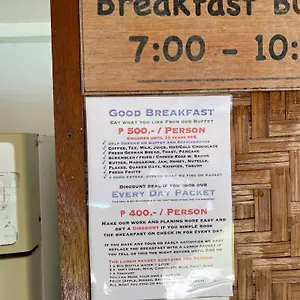 Breakfast Bu
7:00 - 10:
GOOD BREAKFAST
EAT WHAT YOU LIKE FROM OUR BUFFET
₱ 500.- / PERSON
CHILDREN UNTIL 10 YEARS 50%
SELF SERVICE ON BUFFET AND REFRIGERATOR
COFFEE, TEE, MILK, JUICE, HOT/COLD CHOCOLATE
FRESH GERMAN BREAD, TOAST, PANCAKE
SCRAMBLED / FRIED / COOKED EGGS W. BACON
BUTTER, MARGARINE, JAM, HONEY, NUTELLA
FLAKES, QUAKER OATS, KRISPIES, YOGURT
FRESH FRUITS
+ SOME EXTRAS, DEPENDS WHAT WE FIND ON MARKET
DISCOUNT DEAL IF YOU BOOK OUR
EVERY DAY PACKET
₱ 400.- / PERSON
MAKE OUR WORK AND PLANING MORE EASY AND
GET A DISCOUNT IF YOU SIMPLE BOOK
THE BREAKFAST ON CHECK IN FOR EVERY DAY.
IF YOU HAVE ANY TOUR OR EARLY ACTIVITY WE EASY
REPLACE THE BREAKFAST WITH A LUNCH PACKET IF
YOU TELL US THIS THE NIGHT BEFORE UNTIL
THE LUNCH PACKET CONTAINS PER PERSON: